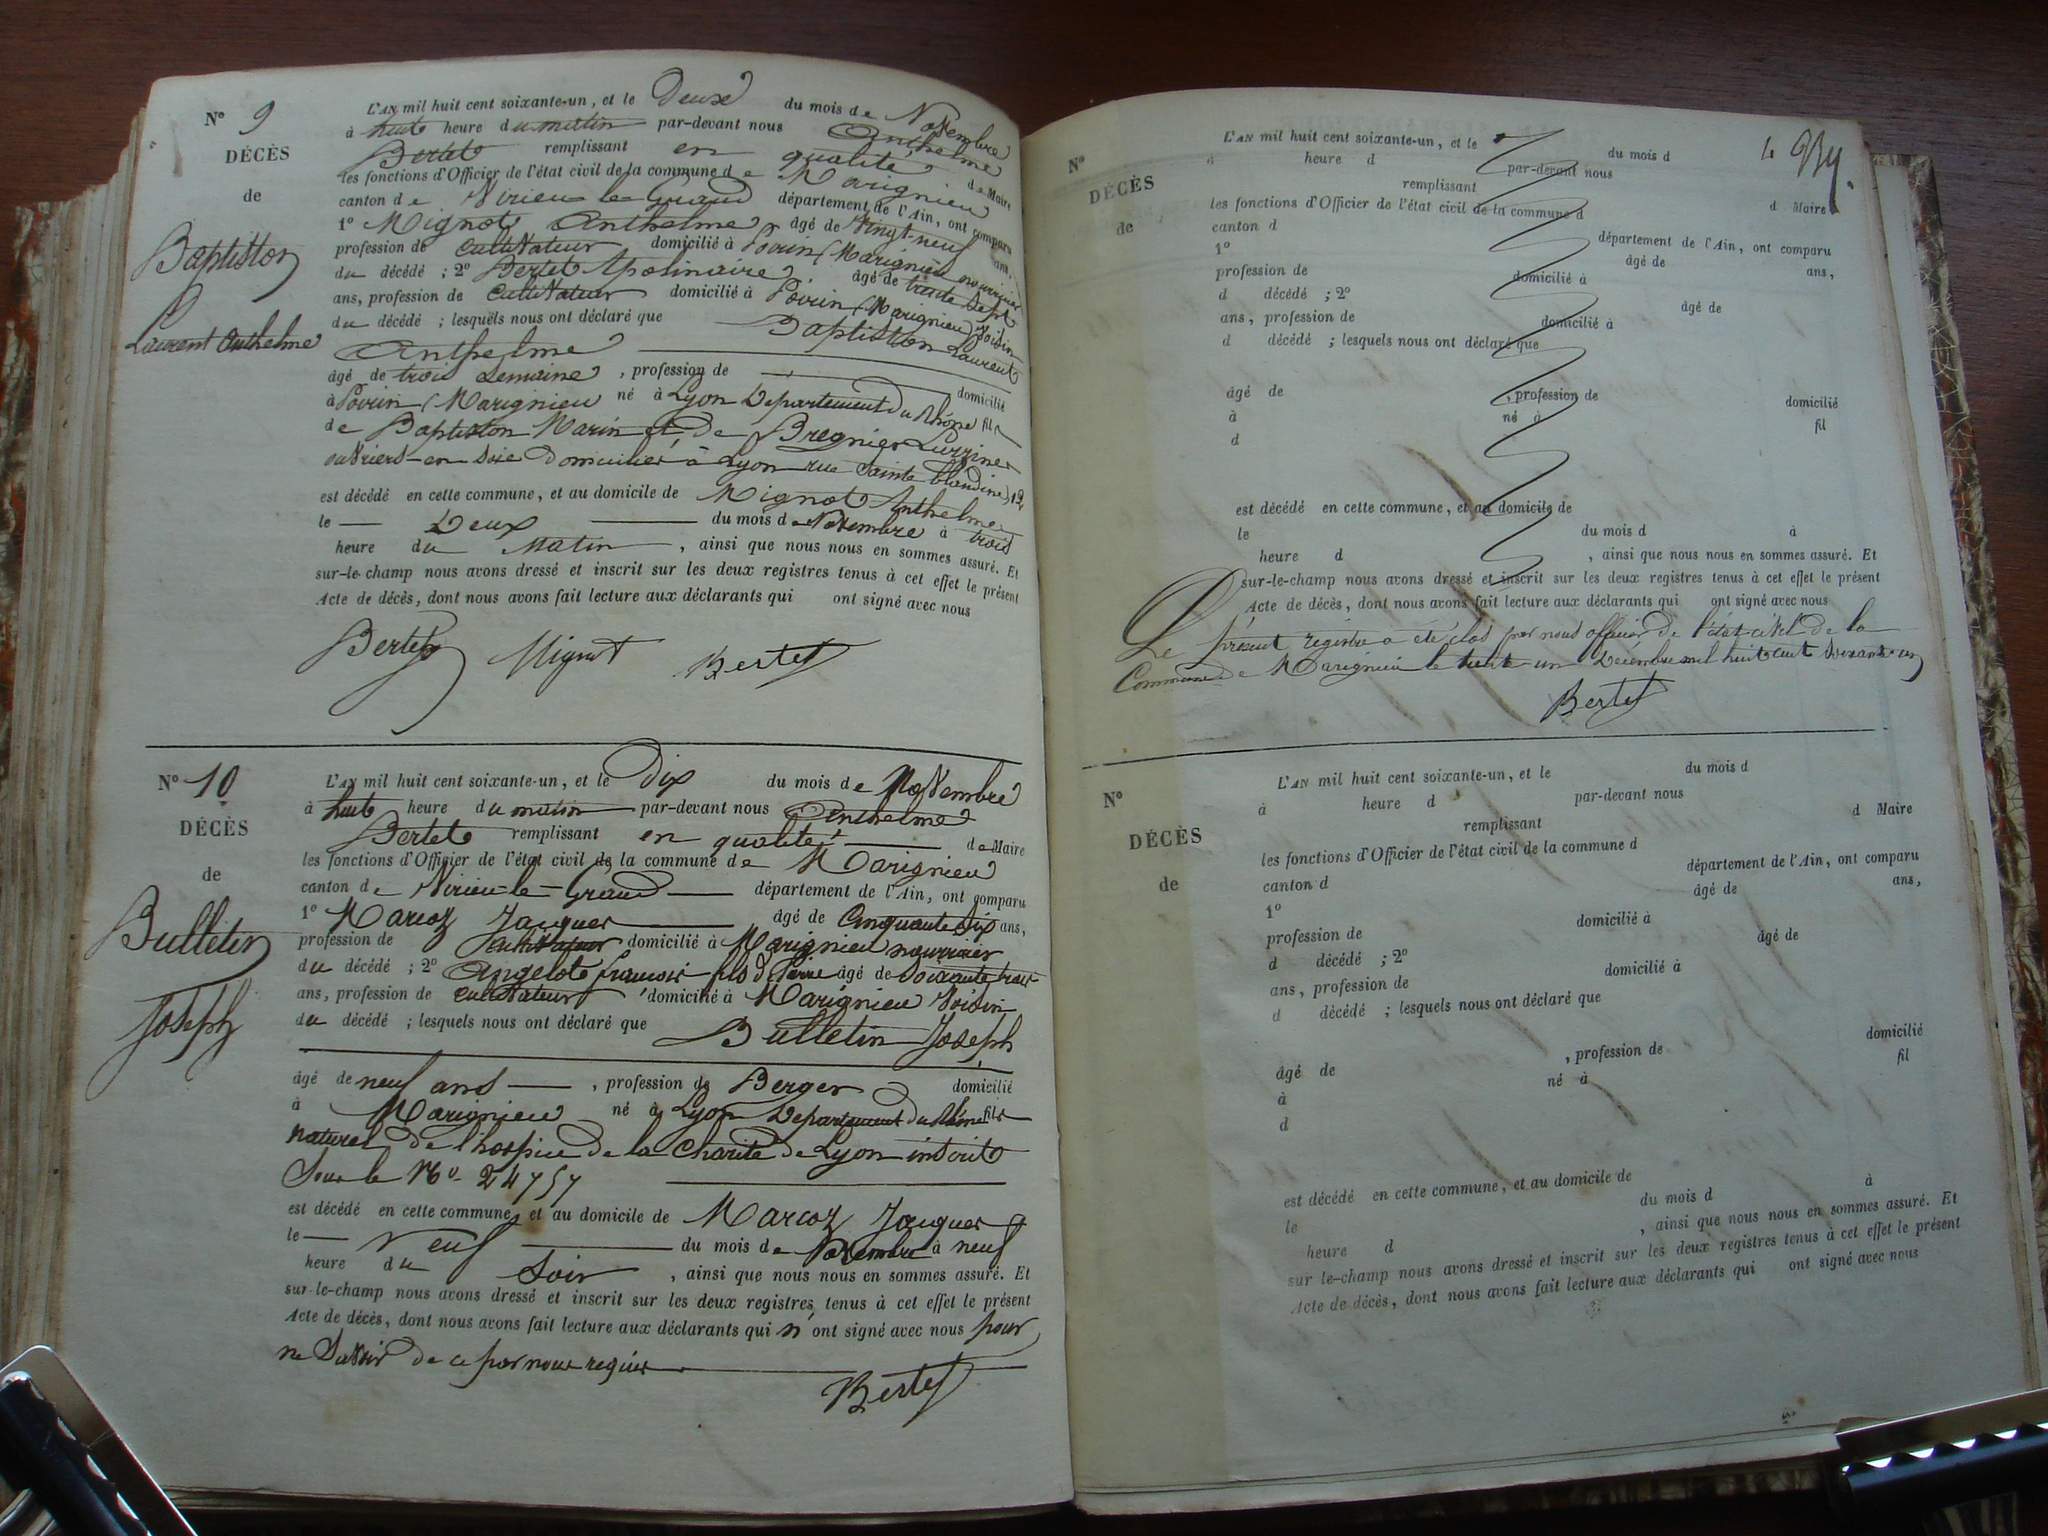 N° 9
DÉCÈS
de
Baptiston
Laurent Anthelme
L'AN mil huit cent soixante-un, et le Deux du mois de Novembre
à huit heure du matin par-devant nous Anthelme
Bertet remplissant en qualité de Maire
les fonctions d'Officier de l'état civil de la commune de Marignieu
canton de Virieu-le-Grand département de l'Ain, ont comparu
1° Mignot Anthelme âgé de Vingt-neuf ans,
profession de Cultivateur domicilié à Poirin (Marignieu) nourricier
du décédé ; 2° Bertet Apolinaire âgé de trente sept
ans, profession de Cultivateur domicilié à Poirin (Marignieu) Voisin
du décédé ; lesquels nous ont déclaré que Baptiston Laurent
Anthelme
âgé de trois Semaine , profession de domicilié
à Poirin (Marignieu né à Lyon Département du Rhône fils
de Baptiston Marin et de Bregnier
ouvriers en Soie Domiciliés à Lyon rue Sainte Blandine, 12
est décédé en cette commune, et au domicile de Mignot Anthelme
le Deux du mois de Novembre à trois
heure du Matin , ainsi que nous nous en sommes assuré. Et
sur-le-champ nous avons dressé et inscrit sur les deux registres tenus à cet effet le présent
Acte de décès, dont nous avons fait lecture aux déclarants qui ont signé avec nous
Bertet Mignot Bertet
N° 10
DÉCÈS
de
Bulletin
Joseph
L'AN mil huit cent soixante-un, et le Dix du mois de Novembre
à huit heure du matin par-devant nous Anthelme
Bertet remplissant en qualité de Maire
les fonctions d'Officier de l'état civil de la commune de Marignieu
canton de Virieu-le-Grand département de l'Ain, ont comparu
1° Marcoz Jacques âgé de Cinquante Dix ans,
profession de Cultivateur domicilié à Marignieu nourricier
du décédé ; 2° Angelot françois fils d Pierre âgé de Soixante trois
ans, profession de Cultivateur domicilié à Marignieu Voisin
du décédé ; lesquels nous ont déclaré que Bulletin Joseph
âgé de neuf ans , profession de Berger domicilié
à Marignieu né à Lyon Département du Rhône fils
naturel de l'hospice de la Charité de Lyon inscrit
Sous le No 24757
est décédé en cette commune, et au domicile de Marcoz Jacques
le neuf du mois de Novembre à neuf
heure du Soir , ainsi que nous nous en sommes assuré. Et
sur-le-champ nous avons dressé et inscrit sur les deux registres tenus à cet effet le présent
Acte de décès, dont nous avons fait lecture aux déclarants qui n' ont signé avec nous pour
ne Savoir de ce par nous requis
Bertet
N°
DÉCÈS
de
L'AN mil huit cent soixante-un, et le du mois d
d heure d par-devant nous
remplissant d Maire
les fonctions d'Officier de l'état civil de la commune d
canton d département de l'Ain, ont comparu
1° âgé de ans,
profession de domicilié à
d décédé ; 2° âgé de
ans, profession de domicilié à
d décédé ; lesquels nous ont déclaré que
âgé de , profession de domicilié
à né à fil
d
est décédé en cette commune, et au domicile de
le du mois d à
heure d , ainsi que nous nous en sommes assuré. Et
sur-le-champ nous avons dressé et inscrit sur les deux registres tenus à cet effet le présent
Acte de décès, dont nous avons fait lecture aux déclarants qui ont signé avec nous
Le présent registre a été clos par nous officier de l'état civil de la
Commune de Marignieu le trente un Décembre mil huit cent soixante un
Bertet
N°
DÉCÈS
de
L'AN mil huit cent soixante-un, et le du mois d
à heure d par-devant nous
remplissant d Maire
les fonctions d'Officier de l'état civil de la commune d
canton d département de l'Ain, ont comparu
1° âgé de ans,
profession de domicilié à
d décédé ; 2° âgé de
ans, profession de domicilié à
d décédé ; lesquels nous ont déclaré que
âgé de , profession de domicilié
à né à fil
d
est décédé en cette commune, et au domicile de
le du mois d à
heure d , ainsi que nous nous en sommes assuré. Et
sur le-champ nous avons dressé et inscrit sur les deux registres tenus à cet effet le présent
Acte de décès, dont nous avons fait lecture aux déclarants qui ont signé avec nous